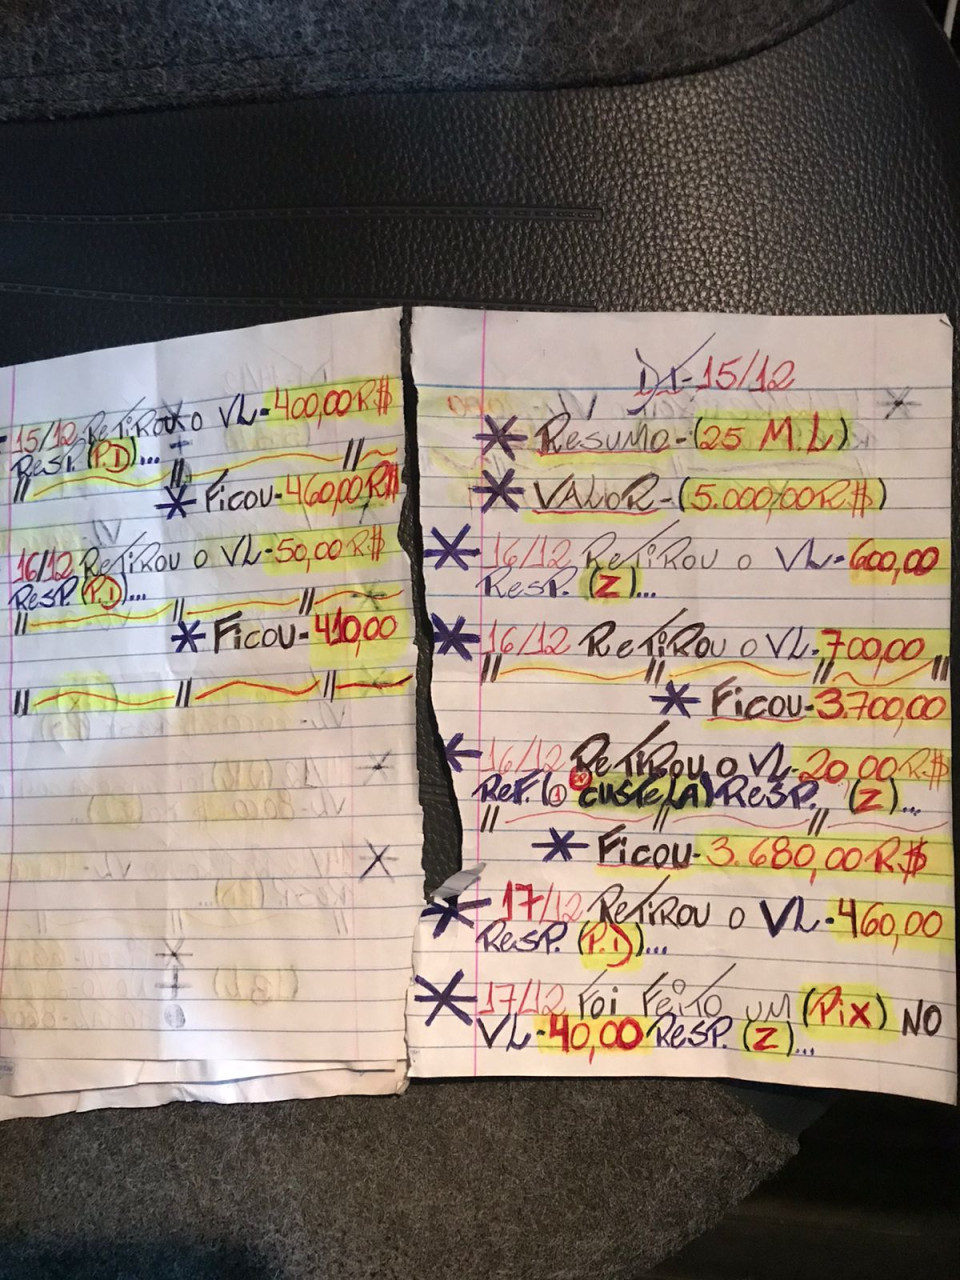 15/12 Retirou o VL-400,00 R$
Resp. (P.D)...
Ficou-460,00 R$
16/12 Retirou o VL-50,00 R$
Resp. (P.D)...
Ficou-410,00
DT-15/12
Resumo-(25 M.L)
VALOR-(5.000,00 R$)
16/12 Retirou o VL-600,00
Resp. (Z)...
16/12 Retirou o VL-700,00
Ficou-3.700,00
16/12 Retirou o VL-20,00 R$
Ref. (1 custela) Resp. (Z)...
Ficou-3.680,00 R$
17/12 Retirou o VL-460,00
Resp. (P.D)...
17/12 Foi Feito um (Pix) NO
VL-40,00 Resp. (Z)...